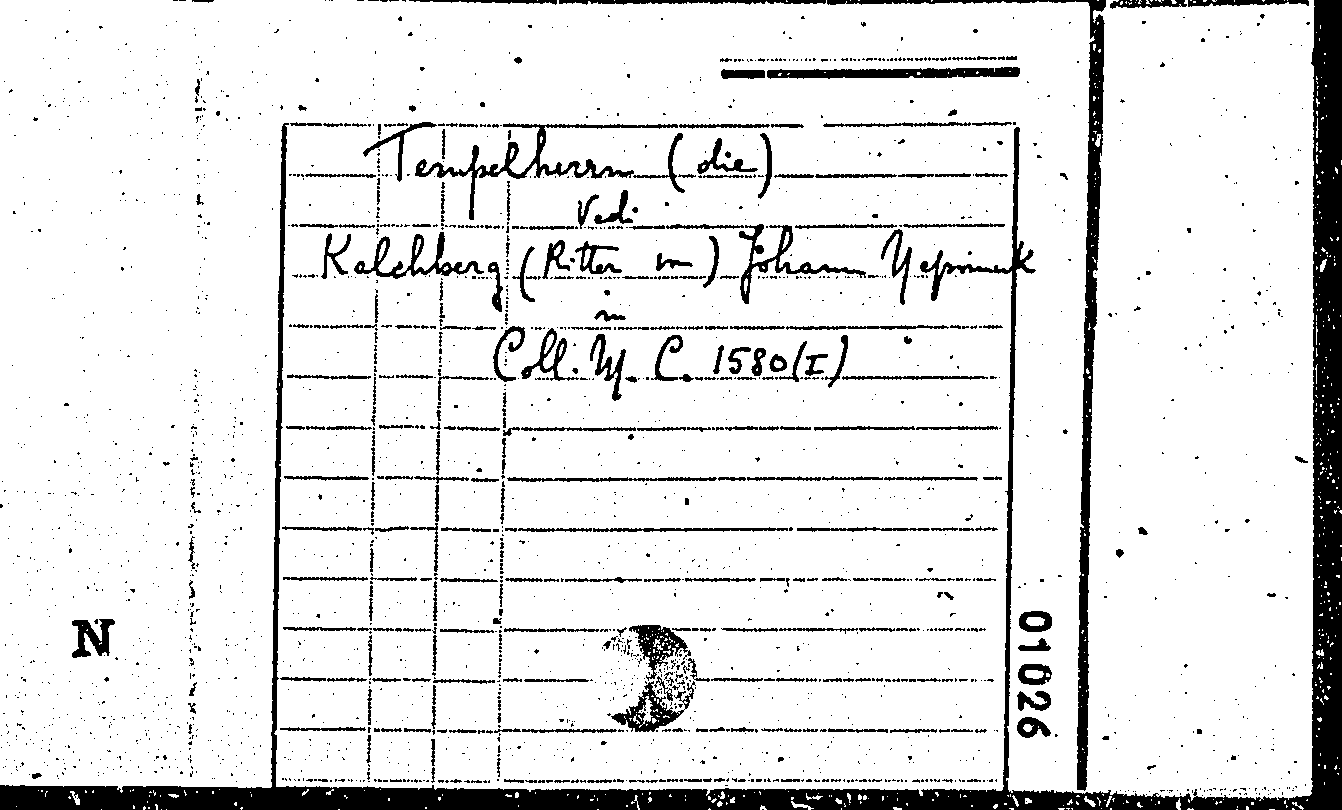 Tempelherrn (die)
Vedi
Kalchberg (Ritter von) Johann Nepomuk
in
Coll. M. C. 1580(I)
N
01026